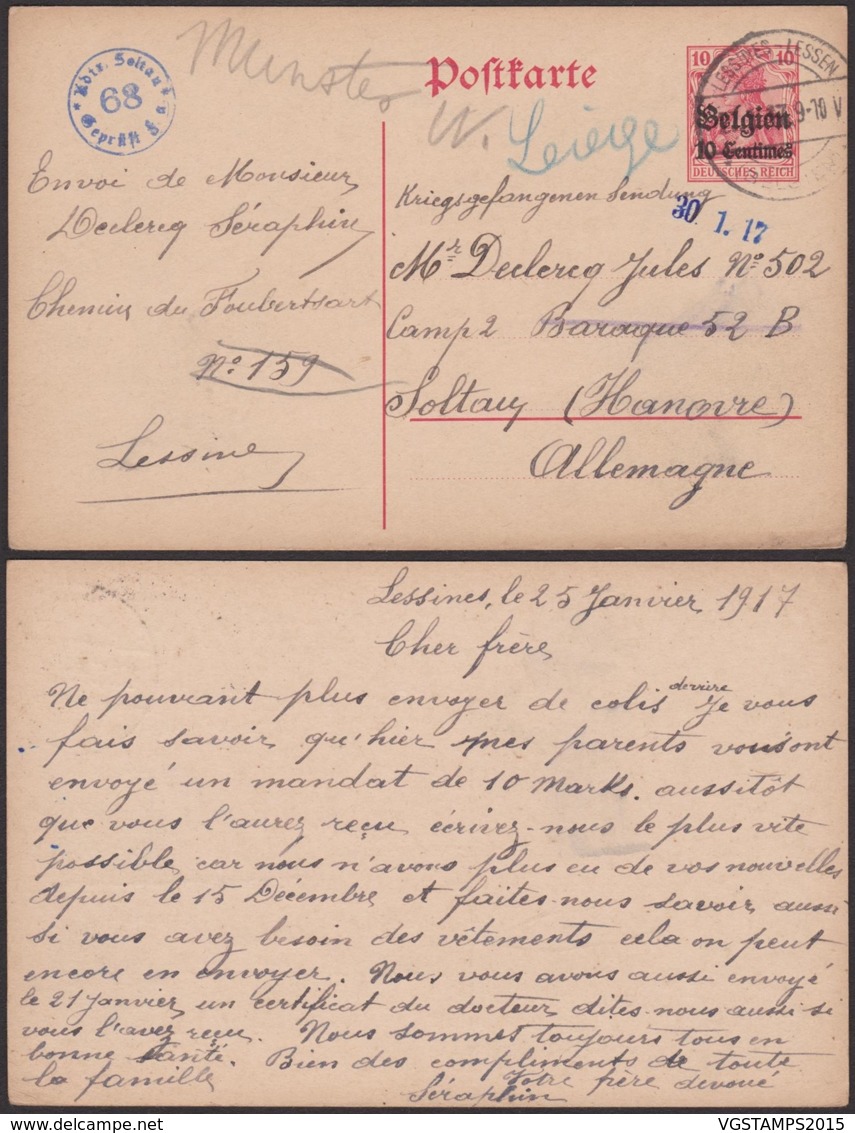 Kdtr. Soltau
68
Geprüft F. a.
Munster
W. Leiege
Postkarte
10 10
Belgien
10 Centimes
DEUTSCHES REICH
LESSINES LESSEN
9-10 V
Envoi de Monsieur
Declercq Séraphin
Chemin du Foubertsart
N° 159
Lessine
Kriegsgefangenen Sendung
30 1. 17
Mr Declercq Jules N° 502
Camp 2 Baraque 52 B
Soltau (Hanovre)
Allemagne
Lessines, le 25 Janvier 1917
Cher frère
Ne pouvant plus envoyer de colis de vivre Je vous
fais savoir qu'hier mes parents vous ont
envoyé un mandat de 10 Marks. aussitôt
que vous l'aurez reçu écrivez-nous le plus vite
possible car nous n'avons plus eu de vos nouvelles
depuis le 15 Décembre et faites-nous savoir aussi
si vous avez besoin des vêtements cela on peut
encore en envoyer. Nous vous avons aussi envoyé
le 21 Janvier un certificat du docteur dites-nous aussi si
vous l'avez reçu. Nous sommes toujours tous en
bonne santé. Bien des compliments de toute
la famille Votre frère devoué
Séraphin
VGSTAMPS2015